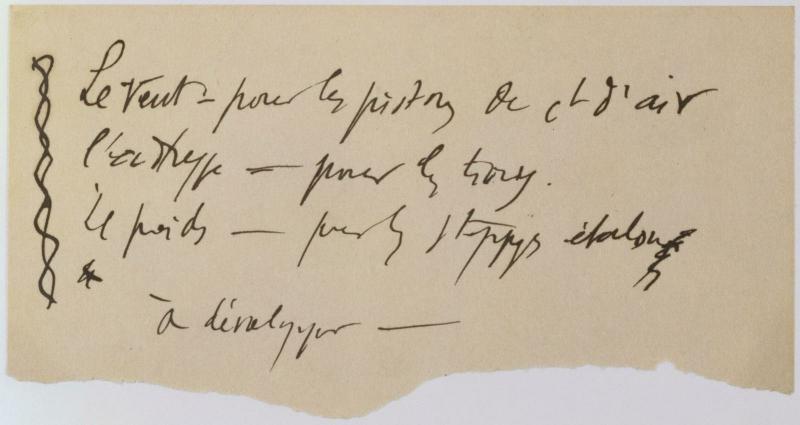 Le Vent – pour les pistons de ct d'air
l'adresse — pour les trous.
le poids — pour les stoppages étalon
à développer —